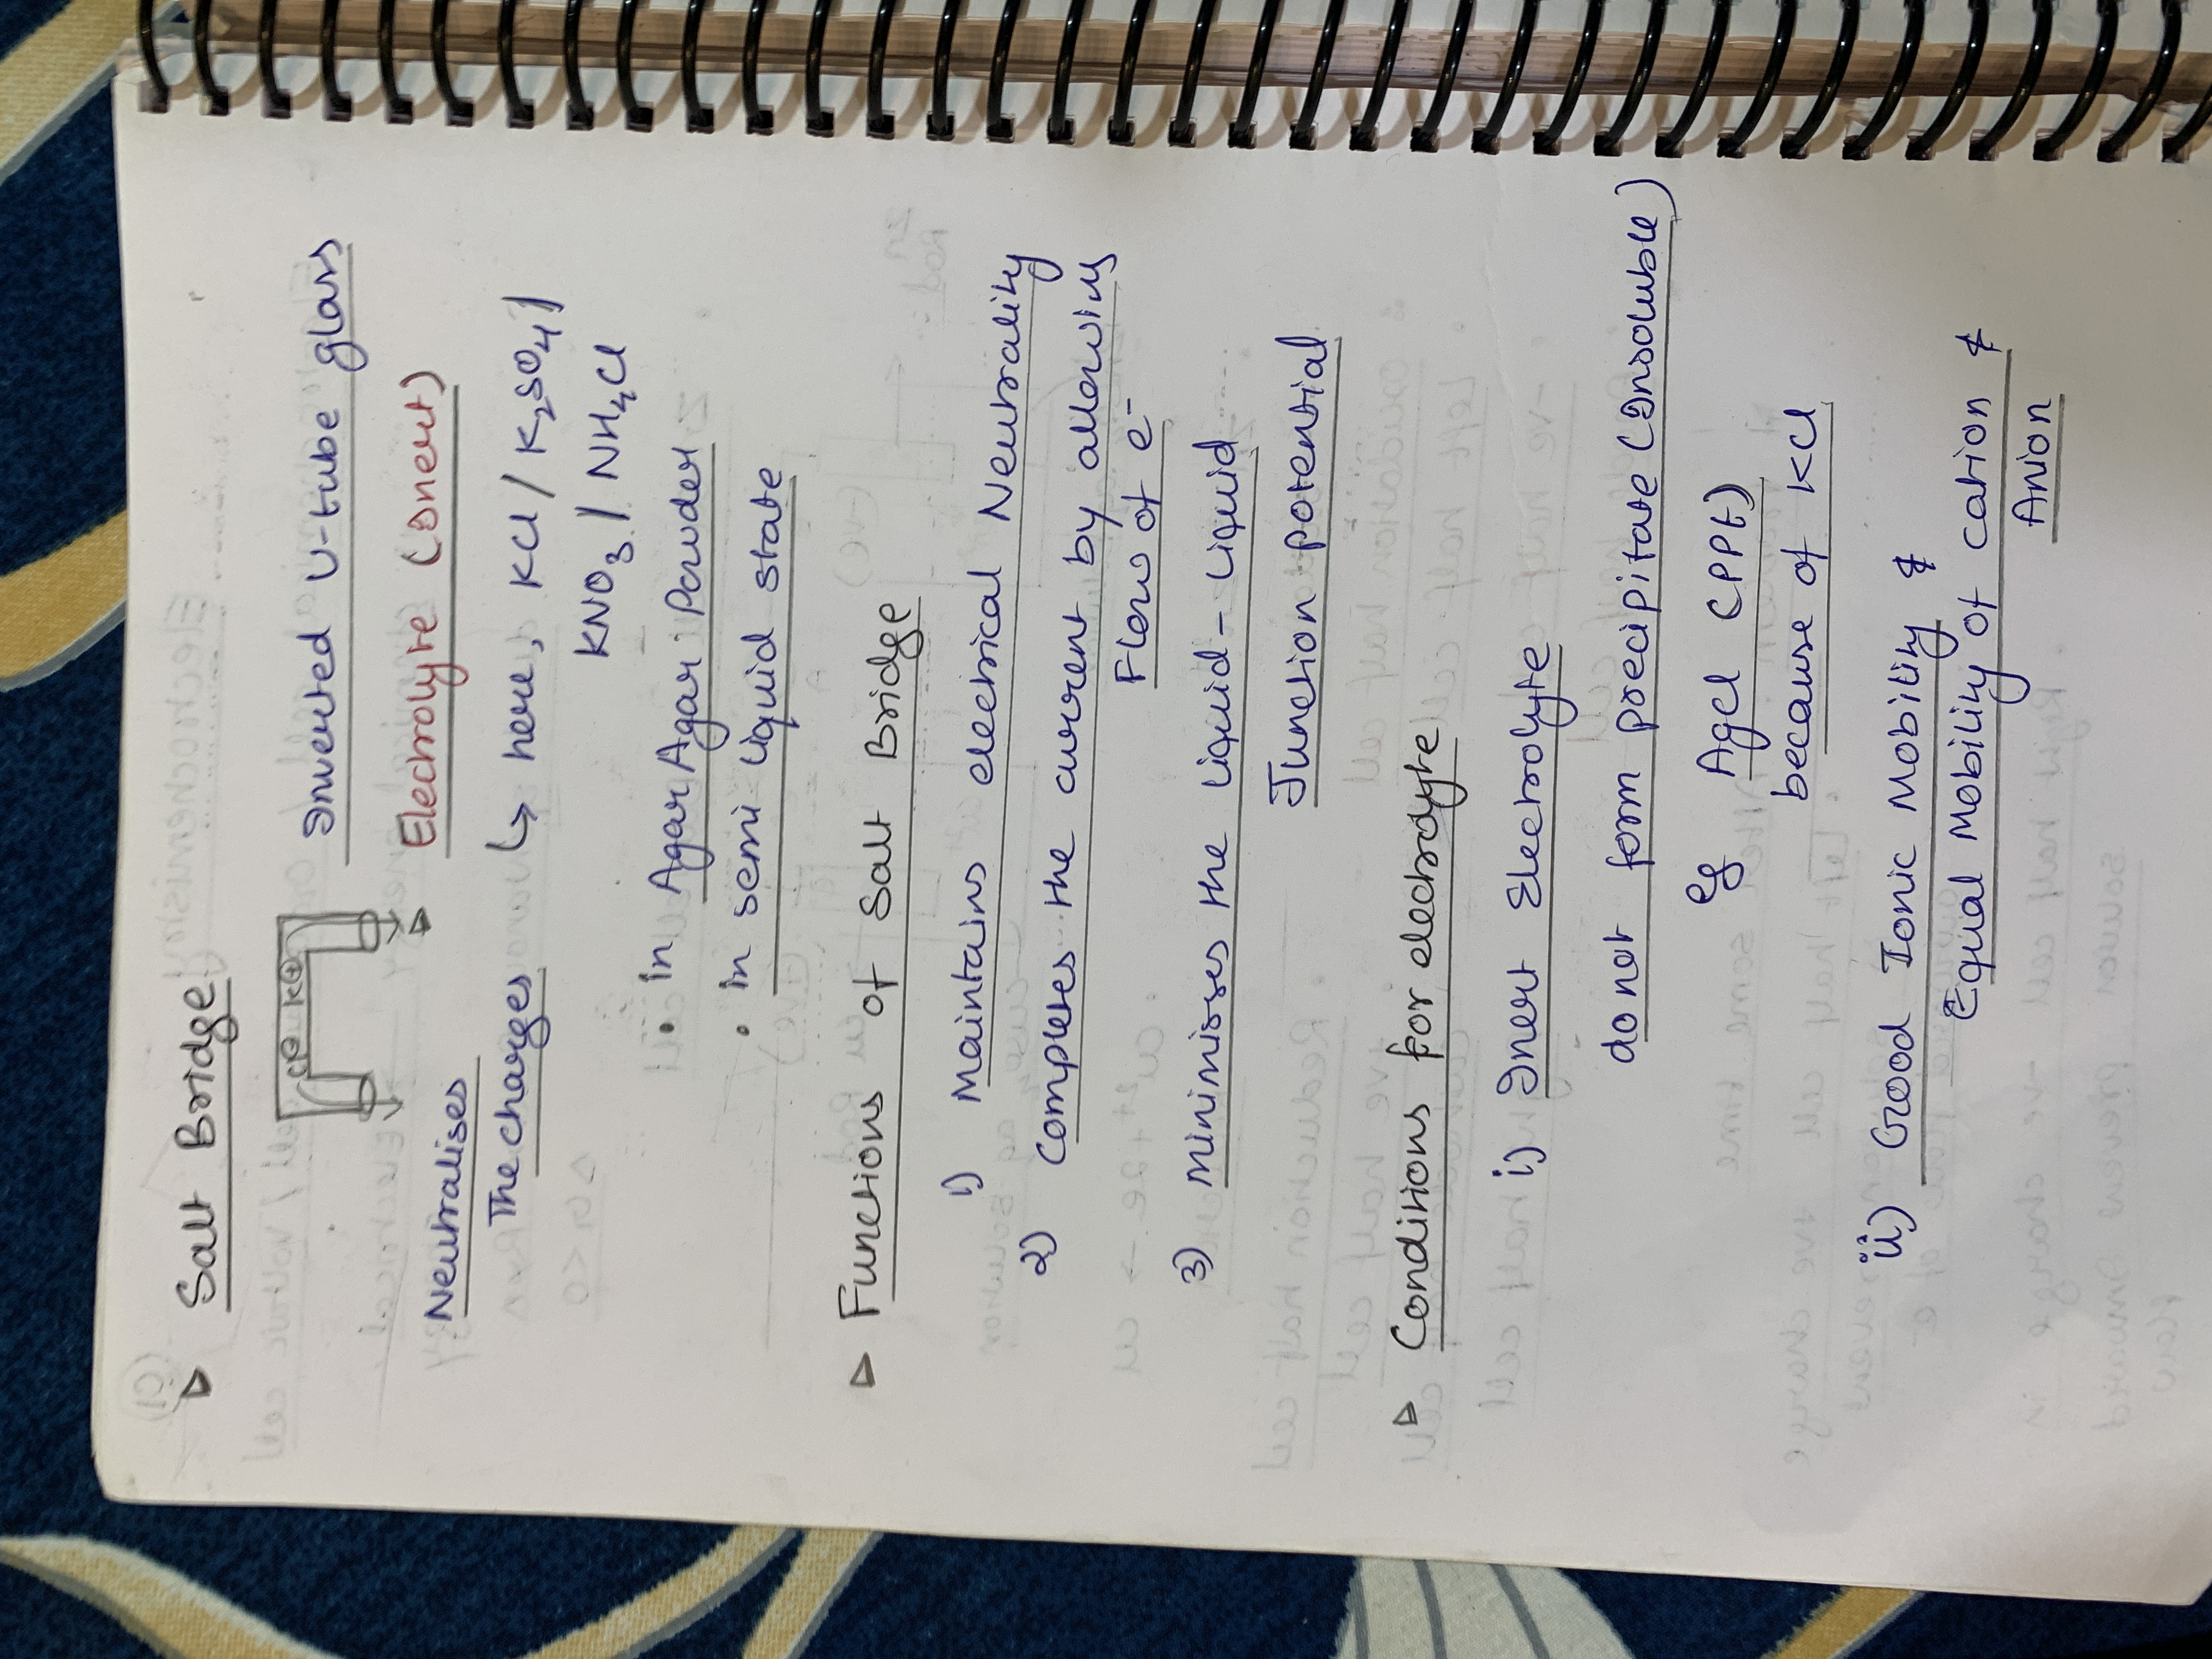 Salt Bridge
Cl⊖ K⊕
Inverted U-tube glass
Electrolyte (Inert)
Neutralises
The charges
↳ here, KCl / K₂SO₄ /
KNO₃ / NH₄Cl
• in Agar Agar Powder
• in semi liquid state
Functions of Salt Bridge
1) Maintains electrical Neutrality
2) Completes the current by allowing
Flow of e⁻
3) Minimisses the liquid-liquid
Junction potential
Conditions for electrolyte
i) Inert Electrolyte
do not form precipitate (Insoluble)
eg AgCl (PPt)
because of KCl
ii) Good Ionic Mobility &
Equal Mobility of cation &
Anion